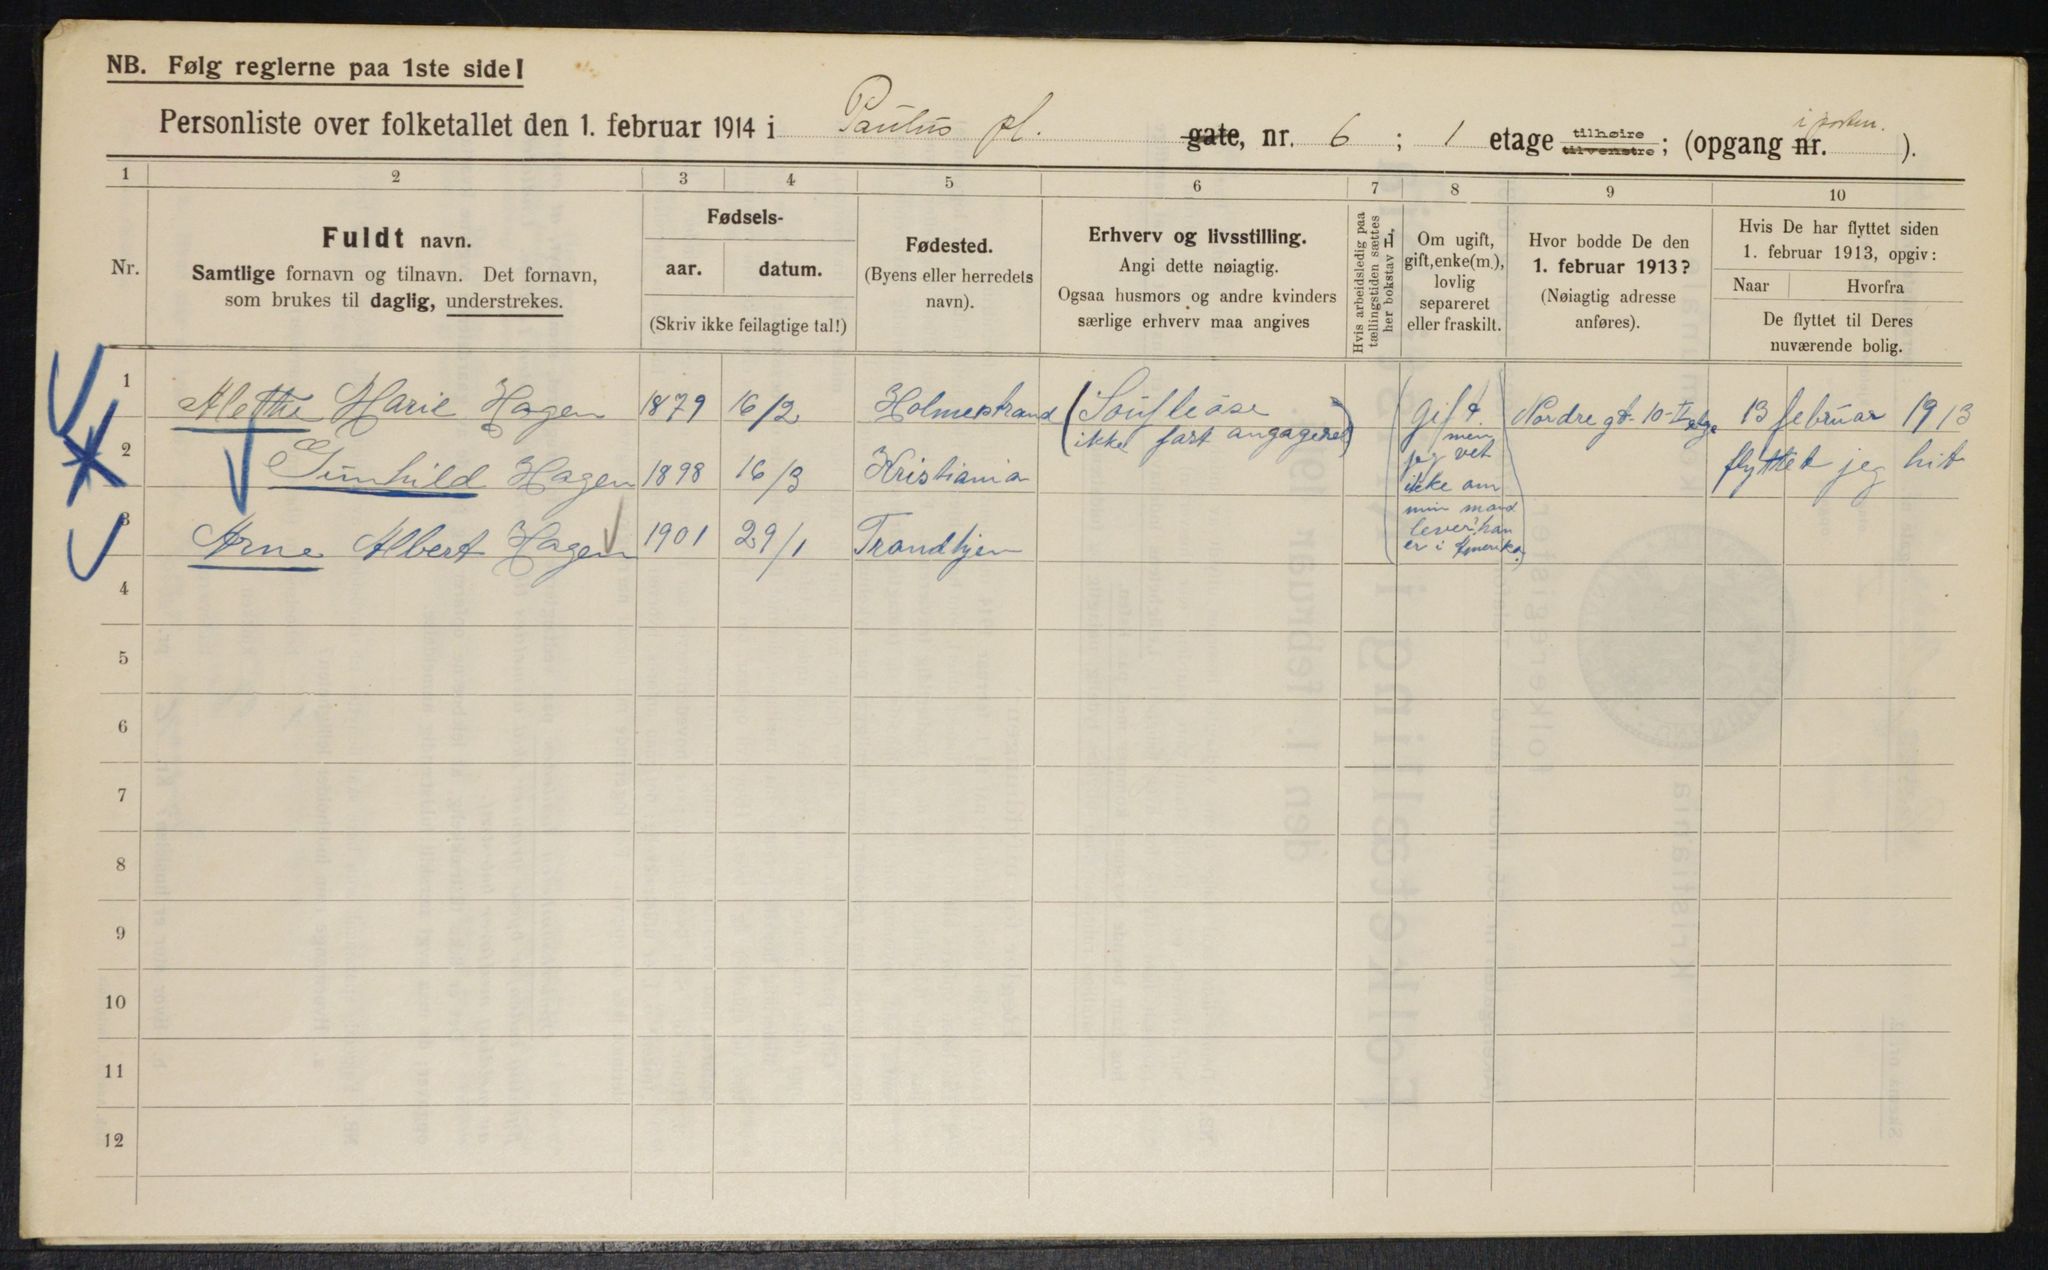 NB. Følg reglerne paa 1ste side!
Personliste over folketallet den 1. februar 1914 i Paulus pl. gate, nr. 6 ; 1 etage tilhøire tilvenstre; (opgang nr. i porten.).
1 2 3 4 5 6 7 8 9 10
Nr.
Fuldt navn.
Samtlige fornavn og tilnavn. Det fornavn,
som brukes til daglig, understrekes.
Fødsels-
aar. datum.
(Skriv ikke feilagtige tal!)
Fødested.
(Byens eller herredets
navn).
Erhverv og livsstilling.
Angi dette nøiagtig.
Ogsaa husmors og andre kvinders
særlige erhverv maa angives
Hvis arbeidsledig paa
tællingstiden sættes
her bokstav L,
Om ugift,
gift, enke(m.),
lovlig
separeret
eller fraskilt.
Hvor bodde De den
1. februar 1913?
(Nøiagtig adresse
anføres).
Hvis De har flyttet siden
1. februar 1913, opgiv:
Naar Hvorfra
De flyttet til Deres
nuværende bolig.
1 Alethe Marie Hagen 1879 16/2 Holmestrand (Soufleøse gift. Nordre gt. 10 II etge 13 februar 1913
ikke fast angageret)
2 Gunhild Hagen 1898 16/3 Kristiania flyttet jeg hit
men
jeg vet
ikke om
min mand
lever, han
er i Amerika.)
3 Arne Albert Hagen 1901 29/1 Trondhjem
4
5
6
7
8
9
10
11
12